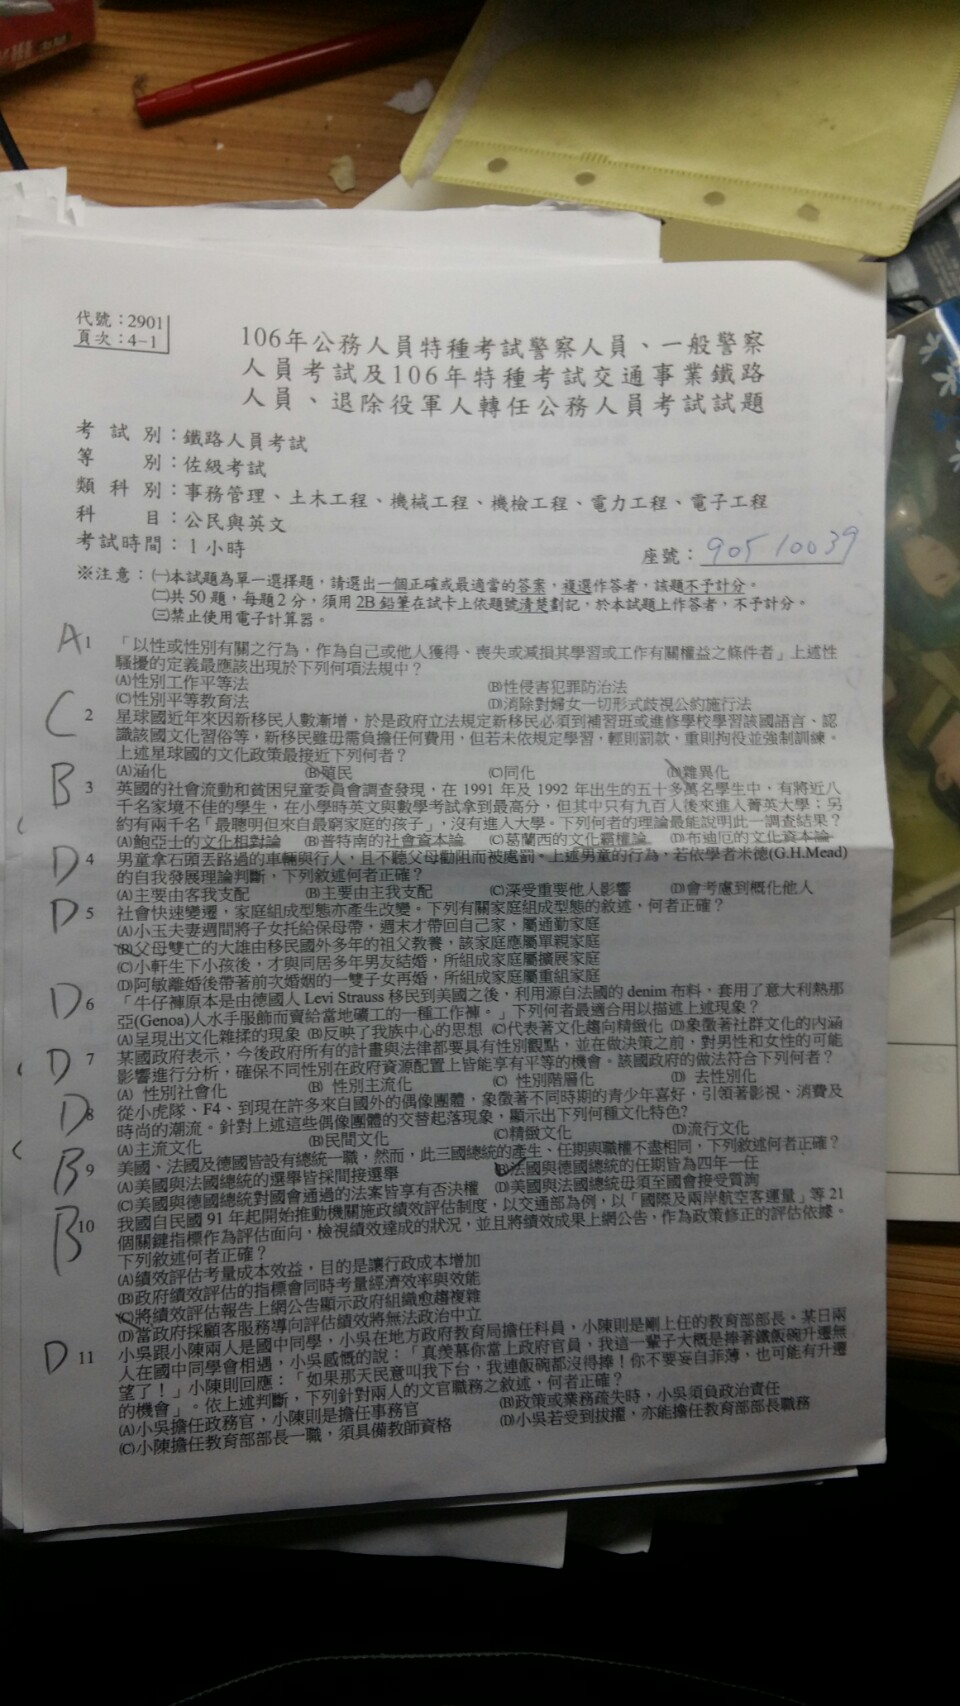 代號：2901
頁次：4-1
106年公務人員特種考試警察人員、一般警察
人員考試及106年特種考試交通事業鐵路
人員、退除役軍人轉任公務人員考試試題
考試別：鐵路人員考試
等別：佐級考試
類科別：事務管理、土木工程、機械工程、機檢工程、電力工程、電子工程
科目：公民與英文
考試時間：1小時
座號：90510039
※注意：㈠本試題為單一選擇題，請選出一個正確或最適當的答案，複選作答者，該題不予計分。
㈡共50題，每題2分，須用2B鉛筆在試卡上依題號清楚劃記，於本試題上作答者，不予計分。
㈢禁止使用電子計算器。
A 1 「以性或性別有關之行為，作為自己或他人獲得、喪失或減損其學習或工作有關權益之條件者」上述性
騷擾的定義最應該出現於下列何項法規中？
(A)性別工作平等法 (B)性侵害犯罪防治法
(C)性別平等教育法 (D)消除對婦女一切形式歧視公約施行法
C 2 星球國近年來因新移民人數漸增，於是政府立法規定新移民必須到補習班或進修學校學習該國語言、認
識該國文化習俗等，新移民雖毋需負擔任何費用，但若未依規定學習，輕則罰款，重則拘役並強制訓練。
上述星球國的文化政策最接近下列何者？
(A)涵化 (B)殖民 (C)同化 (D)雜異化
B 3 英國的社會流動和貧困兒童委員會調查發現，在1991年及1992年出生的五十多萬名學生中，有將近八
千名家境不佳的學生，在小學時英文與數學考試拿到最高分，但其中只有九百人後來進入菁英大學；另
約有兩千名「最聰明但來自最窮家庭的孩子」，沒有進入大學。下列何者的理論最能說明此一調查結果？
(A)鮑亞士的文化相對論 (B)普特南的社會資本論 (C)葛蘭西的文化霸權論 (D)布迪厄的文化資本論
D 4 男童拿石頭丟路過的車輛與行人，且不聽父母勸阻而被處罰。上述男童的行為，若依學者米德(G.H.Mead)
的自我發展理論判斷，下列敘述何者正確？
(A)主要由客我支配 (B)主要由主我支配 (C)深受重要他人影響 (D)會考慮到概化他人
D 5 社會快速變遷，家庭組成型態亦產生改變。下列有關家庭組成型態的敘述，何者正確？
(A)小玉夫妻週間將子女托給保母帶，週末才帶回自己家，屬通勤家庭
(B)父母雙亡的大雄由移民國外多年的祖父教養，該家庭應屬單親家庭
(C)小軒生下小孩後，才與同居多年男友結婚，所組成家庭屬擴展家庭
(D)阿敏離婚後帶著前次婚姻的一雙子女再婚，所組成家庭屬重組家庭
D 6 「牛仔褲原本是由德國人Levi Strauss移民到美國之後，利用源自法國的denim布料，套用了意大利熱那
亞(Genoa)人水手服飾而賣給當地礦工的一種工作褲。」下列何者最適合用以描述上述現象？
(A)呈現出文化雜揉的現象 (B)反映了我族中心的思想 (C)代表著文化趨向精緻化 (D)象徵著社群文化的內涵
D 7 某國政府表示，今後政府所有的計畫與法律都要具有性別觀點，並在做決策之前，對男性和女性的可能
影響進行分析，確保不同性別在政府資源配置上皆能享有平等的機會。該國政府的做法符合下列何者？
(A) 性別社會化 (B) 性別主流化 (C) 性別階層化 (D) 去性別化
D 8 從小虎隊、F4、到現在許多來自國外的偶像團體，象徵著不同時期的青少年喜好，引領著影視、消費及
時尚的潮流。針對上述這些偶像團體的交替起落現象，顯示出下列何種文化特色?
(A)主流文化 (B)民間文化 (C)精緻文化 (D)流行文化
B 9 美國、法國及德國皆設有總統一職，然而，此三國總統的產生、任期與職權不盡相同，下列敘述何者正確？
(A)美國與法國總統的選舉皆採間接選舉 (B)法國與德國總統的任期皆為四年一任
(C)美國與德國總統對國會通過的法案皆享有否決權 (D)美國與法國總統毋須至國會接受質詢
B 10 我國自民國91年起開始推動機關施政績效評估制度，以交通部為例，以「國際及兩岸航空客運量」等21
個關鍵指標作為評估面向，檢視績效達成的狀況，並且將績效成果上網公告，作為政策修正的評估依據。
下列敘述何者正確？
(A)績效評估考量成本效益，目的是讓行政成本增加
(B)政府績效評估的指標會同時考量經濟效率與效能
(C)將績效評估報告上網公告顯示政府組織愈趨複雜
(D)當政府採顧客服務導向評估績效將無法政治中立
D 11 小吳跟小陳兩人是國中同學，小吳在地方政府教育局擔任科員，小陳則是剛上任的教育部部長。某日兩
人在國中同學會相遇，小吳感慨的說：「真羨慕你當上政府官員，我這一輩子大概是捧著鐵飯碗升遷無
望了！」小陳則回應：「如果那天民意叫我下台，我連飯碗都沒得捧！你不要妄自菲薄，也可能有升遷
的機會」。依上述判斷，下列針對兩人的文官職務之敘述，何者正確？
(A)小吳擔任政務官，小陳則是擔任事務官 (B)政策或業務疏失時，小吳須負政治責任
(C)小陳擔任教育部部長一職，須具備教師資格 (D)小吳若受到拔擢，亦能擔任教育部部長職務